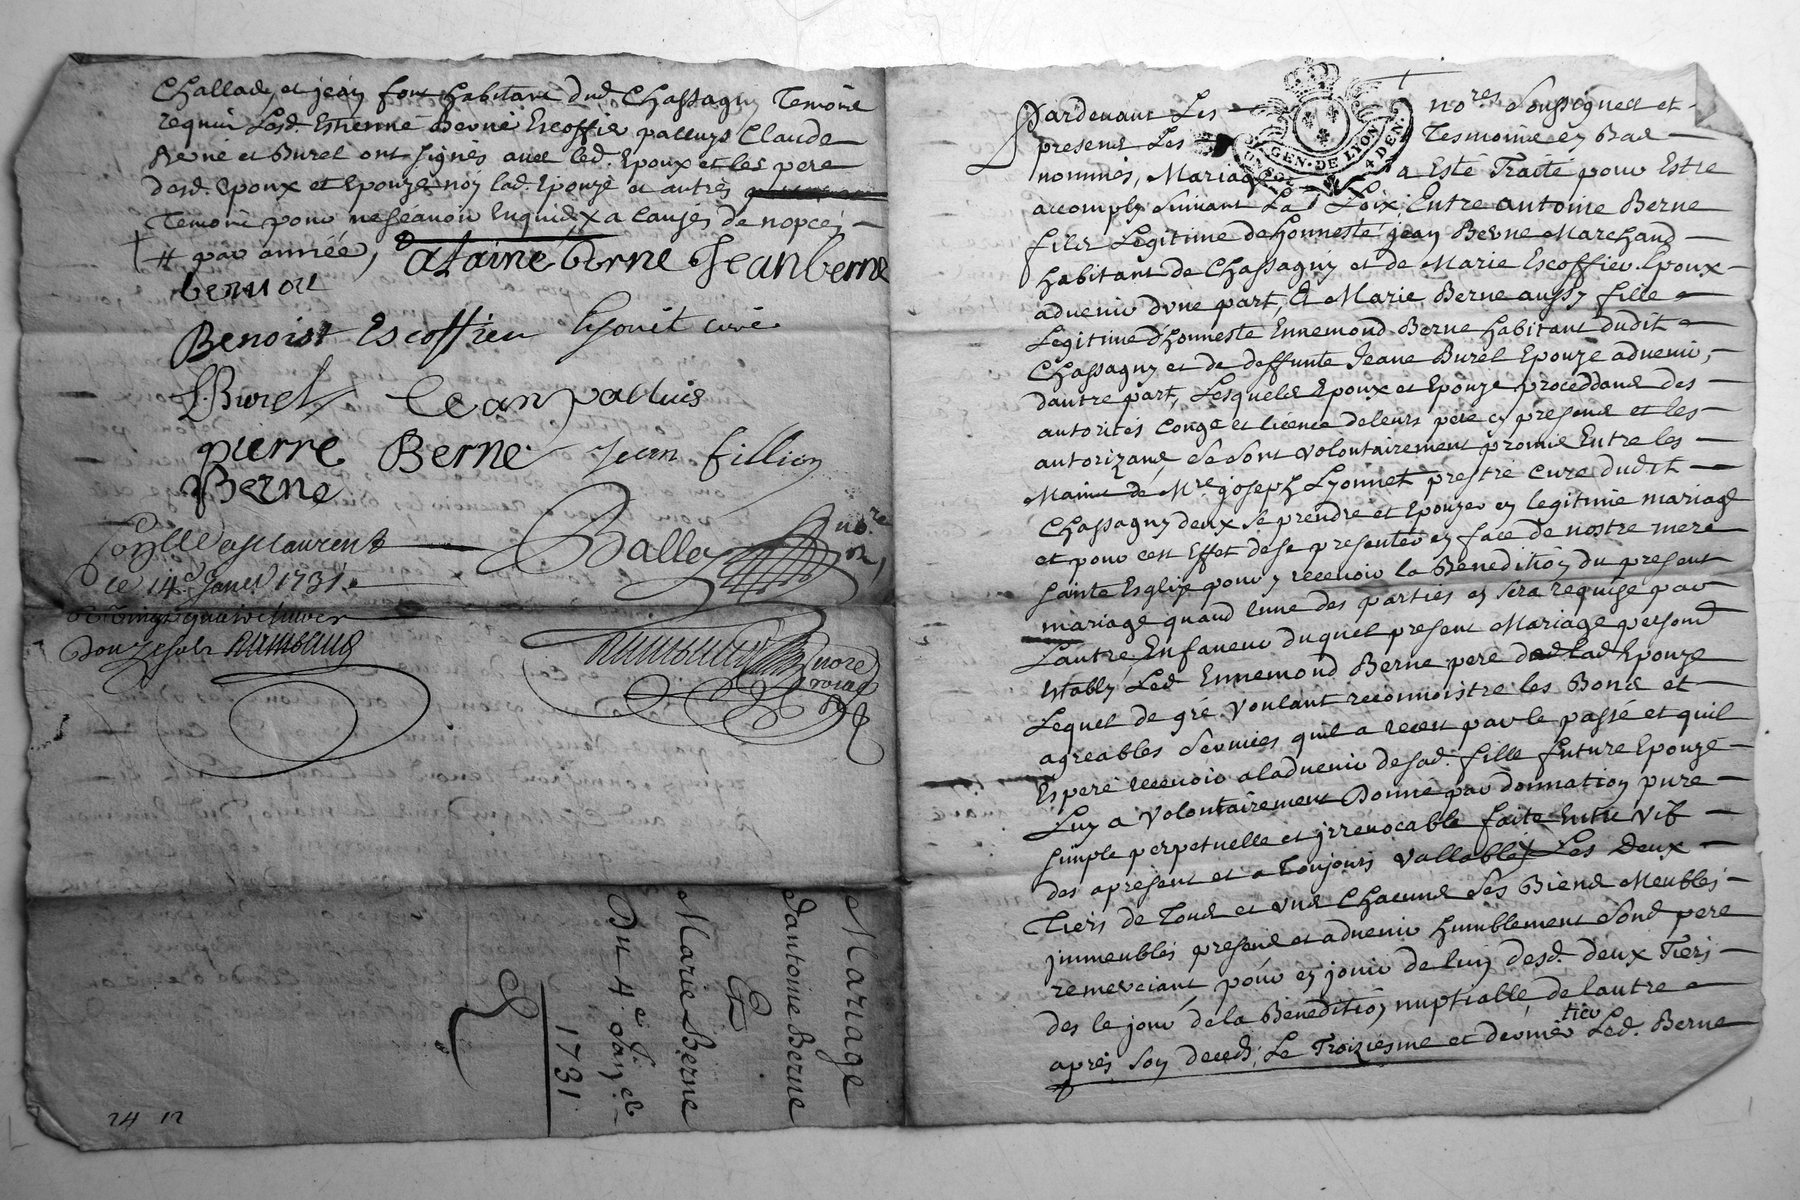 Challady et jean font habitant dud Chassagny Temoins
requis Lesd. Estienne Berne Escoffier palluys Claude
Berne et Burel ont signés avec led. Epoux et les pere
desd. Epoux et Epouze non lad. Epouze et autres
Temoins pour ne sçavoir Enquis X a causes de nopces
# par année,
a taine berne Jean berne
bernon
Benoist Escoffieu Lyonet curé
Burel Jean palluis
pierre Berne Jean fillion
Berne
Ballo nore
St Laurens
ce 14e Janer 1731.
vingt quatre livres
Douze sols
nore
Royal
Mariage
dantoine Berne
Et
Marie Berne
Du 4e Janer
1731
24 12
GEN. DE LYON
4 DEN.
Pardevant Les nores soussignes et
presens Les Tesmoins en Bas
nommés, Mariage a Esté Traité pour Estre
accomply suivant La Loix, Entre antoine Berne
fils Legitime de honneste jean Berne Marchand
habitant de Chassagny et de Marie Escoffier Epoux
advenir dune part, Et Marie Berne aussy fille
Legitime dhonneste Ennemond Berne habitant dudit
Chassagny et de deffunte Jeane Burel Epouze advenir,
dautre part, Lesquels Epoux et Epouze proceddans des
autorités Congé et licence de leurs pere cy presens et les
autorizans se sont volontairement promis Entre les
Mains de Mre joseph Lyonnet prestre curé dudit
Chassagny deux se prendre et Epouzer en legitime mariage
et pour cest Effet de se presenter en face de nostre mere
sainte Eglize pour y recevoir la Benediction du present
mariage quand lune des parties en sera requise par
Lautre, En faveur duquel present Mariage personel
establi Led Ennemond Berne pere de lad Epouze
Lequel de gré voulant reconnoistre les Bons et
agreables services quil a receu par le passé et quil
Espere recevoir a ladvenir de sad. fille future Epouze
Luy a volontairement Donné par donnation pure
simple perpetuelle et irrevocable faite Entre vifs
des apresent et a Toujours vallable X Les Deux
Tiers de Tous et uns Chacuns ses Biens Meubles
immeubles presens et advenir humblement sond pere
remerciant, pour en jouir de luy desd. deux Tiers
des le jour de la Benediction nuptiable, de lautre
tier
apres son deceds, Le Troiziesme et dernier Led. Berne